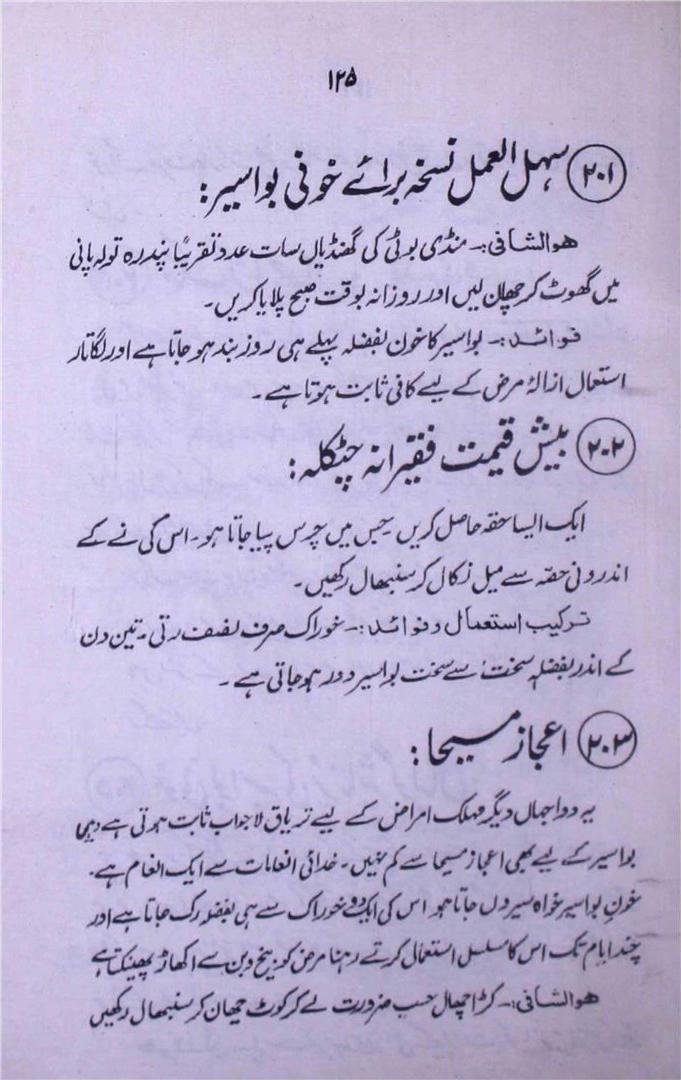 ۱۲۵
۲۰۱ سہل العمل نسخہ برائے خونی بواسیر:
ھوالشافی:۔ منڈی بوٹی کی گھنڈیاں سات عدد تقریباً پندرہ تولہ پانی
میں گھوٹ کر چھان لیں اور روزانہ بوقت صبح پلایا کریں۔
فوائد:۔ بواسیر کا خون بفضلہ پہلے ہی روز بند ہو جاتا ہے اور لگاتار
استعمال ازالۂ مرض کے لیے کافی ثابت ہوتا ہے۔
۲۰۲ بیش قیمت فقیرانہ چٹکلہ:
ایک ایسا حقہ حاصل کریں جس میں چرس پیا جاتا ہو۔ اس کی نے کے
اندرونی حقہ سے میل نکال کر سنبھال رکھیں۔
ترکیب استعمال و فوائد:۔ خوراک صرف نصف رتی۔ تین دن
کے اندر بفضلہٖ سخت سے سخت بواسیر دور ہو جاتی ہے۔
۲۰۳ اعجاز مسیحا:
یہ دوا جہاں دیگر مہلک امراض کے لیے تریاق لاجواب ثابت ہوتی ہے وہیں
بواسیر کے لیے بھی اعجاز مسیحا سے کم نہیں۔ خدائی انعامات سے ایک انعام ہے۔
خون بواسیر خواہ سیروں جاتا ہو اس کی ایک دو خوراک سے ہی بفضلہ رک جاتا ہے اور
چند ایام تک اس کا مسلسل استعمال کرتے رہنا مرض کو بیخ و بن سے اکھاڑ پھینکتا ہے
ھوالشافی:۔ کڑا چھال حسب ضرورت لے کر کوٹ چھان کر سنبھال رکھیں